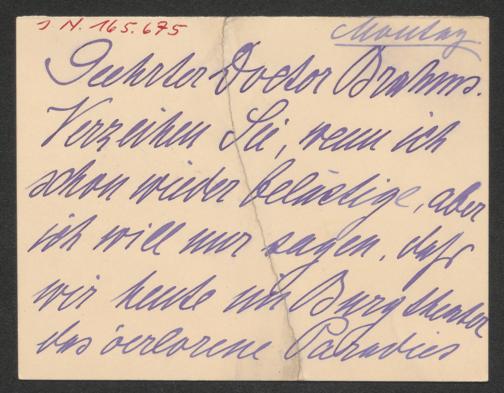 I N. 165.675
Montag
Geehrter Doctor Brahms.
Verzeihen Sie, wenn ich
schon wieder belästige, aber
ich will nur sagen, daß
wir heute im Burgtheater
das verlorene Paradies